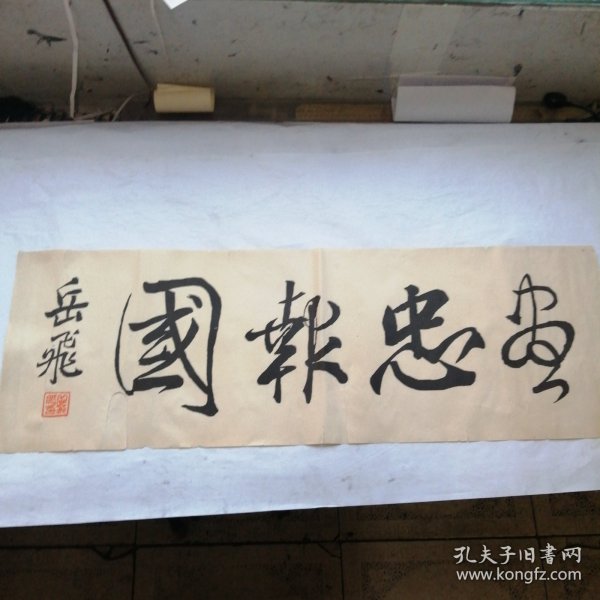 盡忠報國
岳飛
孔夫子旧書网
www.kongfz.com